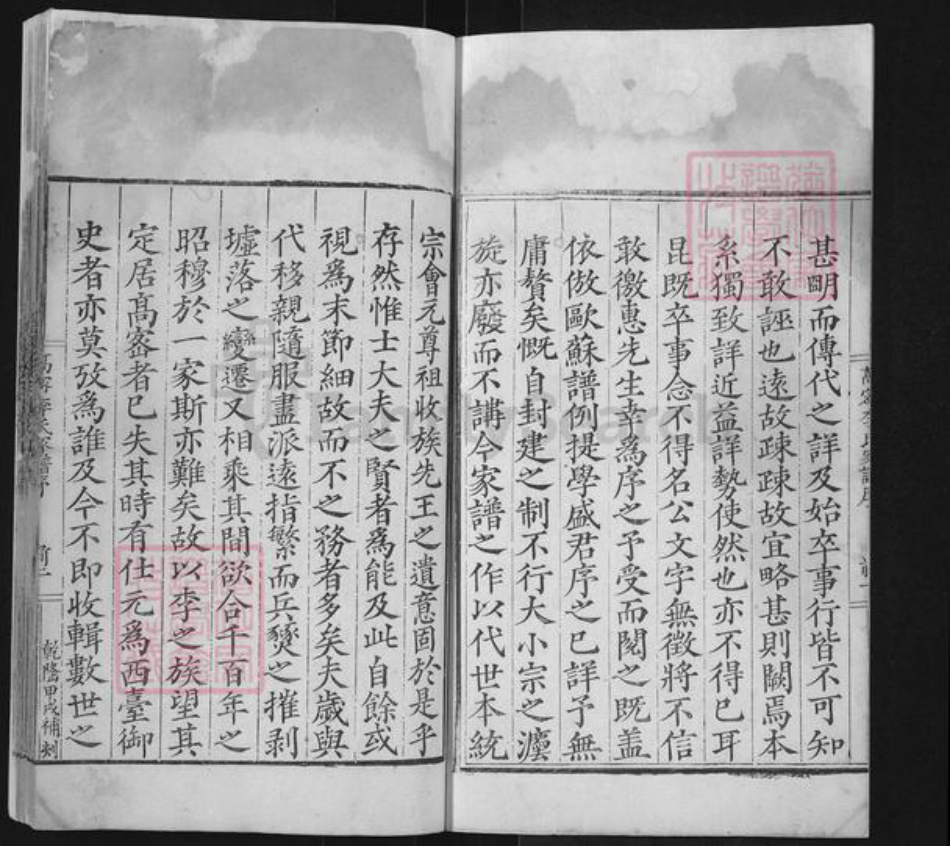 甚明而傳代之詳及始卒事行皆不可知
不敢誣也遠故疎疎故宜略甚則闕焉本
系獨致詳近益詳勢使然也亦不得已耳
昆既卒事念不得名公文字無徵將不信
敢徼惠先生幸爲序之予受而閱之既蓋
依倣歐蘇譜例提學盛君序之已詳予無
庸贅矣慨自封建之制不行大小宗之灋
旋亦廢而不講今家譜之作以代世本統
宗會元尊祖收族先王之遺意固於是乎
存然惟士大夫之賢者爲能及此自餘或
視爲末節細故而不之務者多矣夫歲與
代移親隨服盡派遠指繁而兵燹之摧剥
墟落之變遷又相乘其間欲合千百年之
昭穆於一家斯亦難矣故以李之族望其
定居高密者已失其時有仕元爲西臺御
史者亦莫攷爲誰及今不即收輯數世之
乾隆甲戌補刻